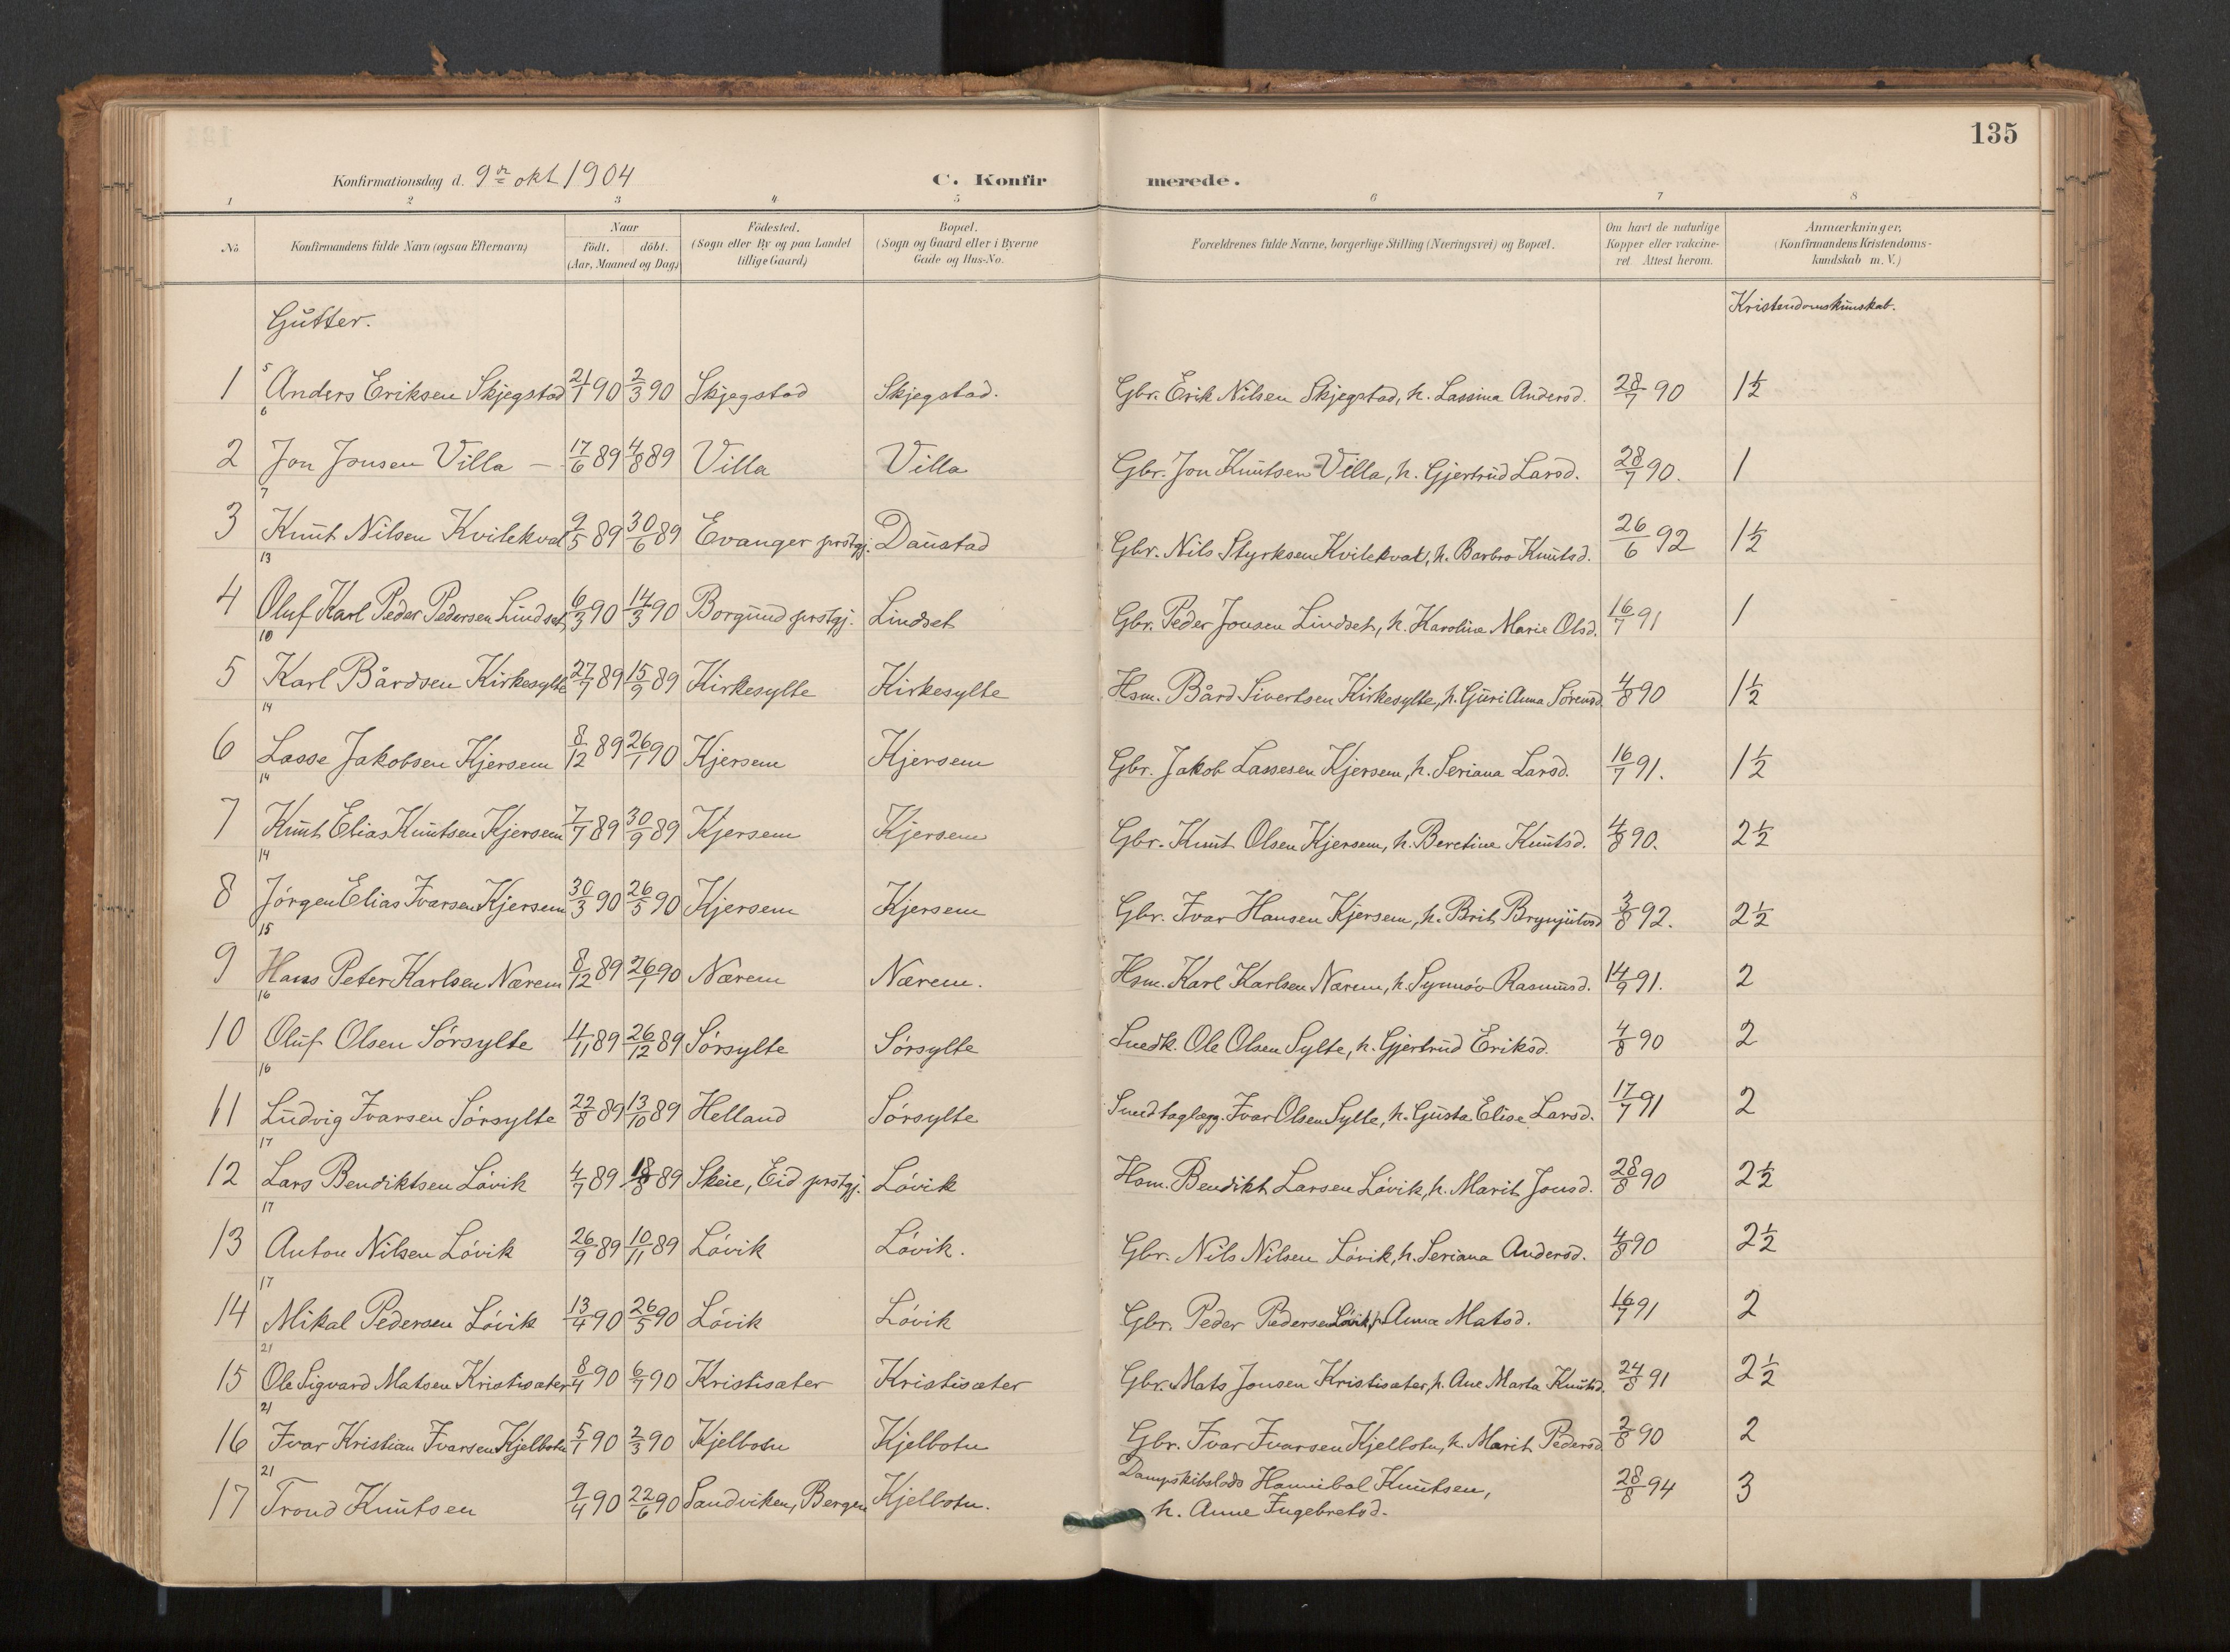 135
Konfirmationsdag d. 9de okt 1904 C. Konfir merede.
1 2 3 4 5 6 7 8
No. Konfirmandens fulde Navn (ogsaa Efternavn) Naar födt. döbt. (Aar, Maaned og Dag) Födested. (Sogn eller By og paa Landet tillige Gaard) Bopæl. (Sogn og Gaard eller i Byerne Gade og Hus-No. Forældrenes fulde Navne, borgerlige Stilling (Næringsvei) og Bopæl. Om havt de naturlige Kopper eller vakcineret. Attest herom. Anmærkninger, (Konfirmandens Kristendomskundskab m. V.)
Gutter. Kristendomskunskab.
5
1 Anders Eriksen Skjegstad 21/1 90 2/3 90 Skjegstad Skjegstad. Gbr. Erik Nilsen Skjegstad, h. Lassina Andersd. 28/7 90 1 1/2
6
2 Jon Jonsen Villa — 17/6 89 4/8 89 Villa Villa Gbr. Jon Knutsen Villa, h. Gjertrud Larsd. 28/7 90. 1
7
3 Knut Nilsen Kvilekval 9/5 89 30/6 89 Evanger prstgj. Daustad Gbr. Nils Styrksen Kvilekval, h. Barbro Knutsd. 26/6 92 1 1/2
13
4 Oluf Karl Peder Pedersen Lindset 6/3 90 14/3 90 Borgund prstgj. Lindset Gbr. Peder Jonsen Lindset, h. Karoline Marie Olsd. 16/7 91 1
10
5 Karl Bårdsen Kirkesylte 27/7 89 15/9 89 Kirkesylte Kirkesylte Hsm. Bård Sivertsen Kirkesylte, h. Guri Anna Sørensd. 4/8 90 1 1/2
14
6 Lasse Jakobsen Kjersem 8/12 89 26/1 90 Kjersem Kjersem Gbr. Jakob Lassesen Kjersem, h. Seriana Larsd. 16/7 91. 1 1/2
14
7 Knut Elias Knutsen Kjersem 7/7 89 30/9 89 Kjersem Kjersem Gbr. Knut Olsen Kjersem, h. Beretine Knutsd. 4/8 90. 2 1/2
14
8 Jórgen Elias Ivarsen Kjersem 30/3 90 26/5 90 Kjersem Kjersem Gbr. Ivar Hansen Kjersem, h. Brit Brynjulvsd 3/8 92. 2 1/2
15
9 Hans Peter Karlsen Nærem 8/12 89 26/1 90 Nærem Nærem. Hsm. Karl Karlsen Nærem, h. Synnóv Rasmusd. 14/9 91. 2
16
10 Oluf Olsen Sórsylte 4/11 89 26/12 89 Sórsylte Sórsylte Snedk. Ole Olsen Sylte, h. Gjertrud Eriksd. 4/8 90 2
16
11 Ludvig Ivarsen Sórsylte 22/8 89 13/10 89 Helland Sórsylte Ivar Olsen Sylte, h. Gusta Elise Larsd. 17/7 91 2
17
12 Lars Bendiktsen Lóvik 4/7 89 18/8 89 Skeie, Eid prstgj. Lóvik Hsm. Bendikt Larsen Lóvik, h. Marit Jonsd. 28/8 90 2 1/2
17
13 Anton Nilsen Lóvik 26/9 89 10/11 89 Lóvik Lóvik. Gbr. Nils Nilsen Lóvik, h. Seriana Andersd. 4/8 90 2 1/2
17
14 Mikal Pedersen Lóvik 13/4 90 26/5 90 Lóvik Lóvik Gbr. Peder Pedersen Lóvik, h. Anna Matsd. 16/7 91 2
21
15 Ole Sigvard Matsen Kristisæter 8/4 90 6/7 90 Kristisæter Kristisæter Gbr. Mats Jonsen Kristisæter, h. Ane Marta Knutsd. 24/8 91 2 1/2
21
16 Ivar Kristian Ivarsen Kjelbotn 5/1 90 2/3 90 Kjelbotn Kjelbotn Gbr. Ivar Ivarsen Kjelbotn, h. Marit Pedersd 2/8 90 2
21
17 Trond Knutsen 9/4 90 22/6 90 Sandviken, Bergen Kjelbotn. Dampskibslods Hannibal Knutsen, 28/8 94 3
h. Anne Ingebretsd.